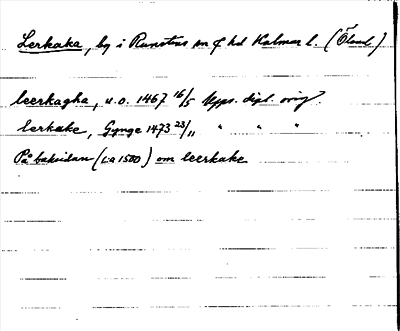 Lerkaka, by i Runstens sn o hd Kalmar l. (Öland)
leerkagha, u.o. 1467 16/5 Upps. dipl. orig.
lerkake, Gynge 1473 23/11 " " "
På baksidan (ca 1500) om leerkake